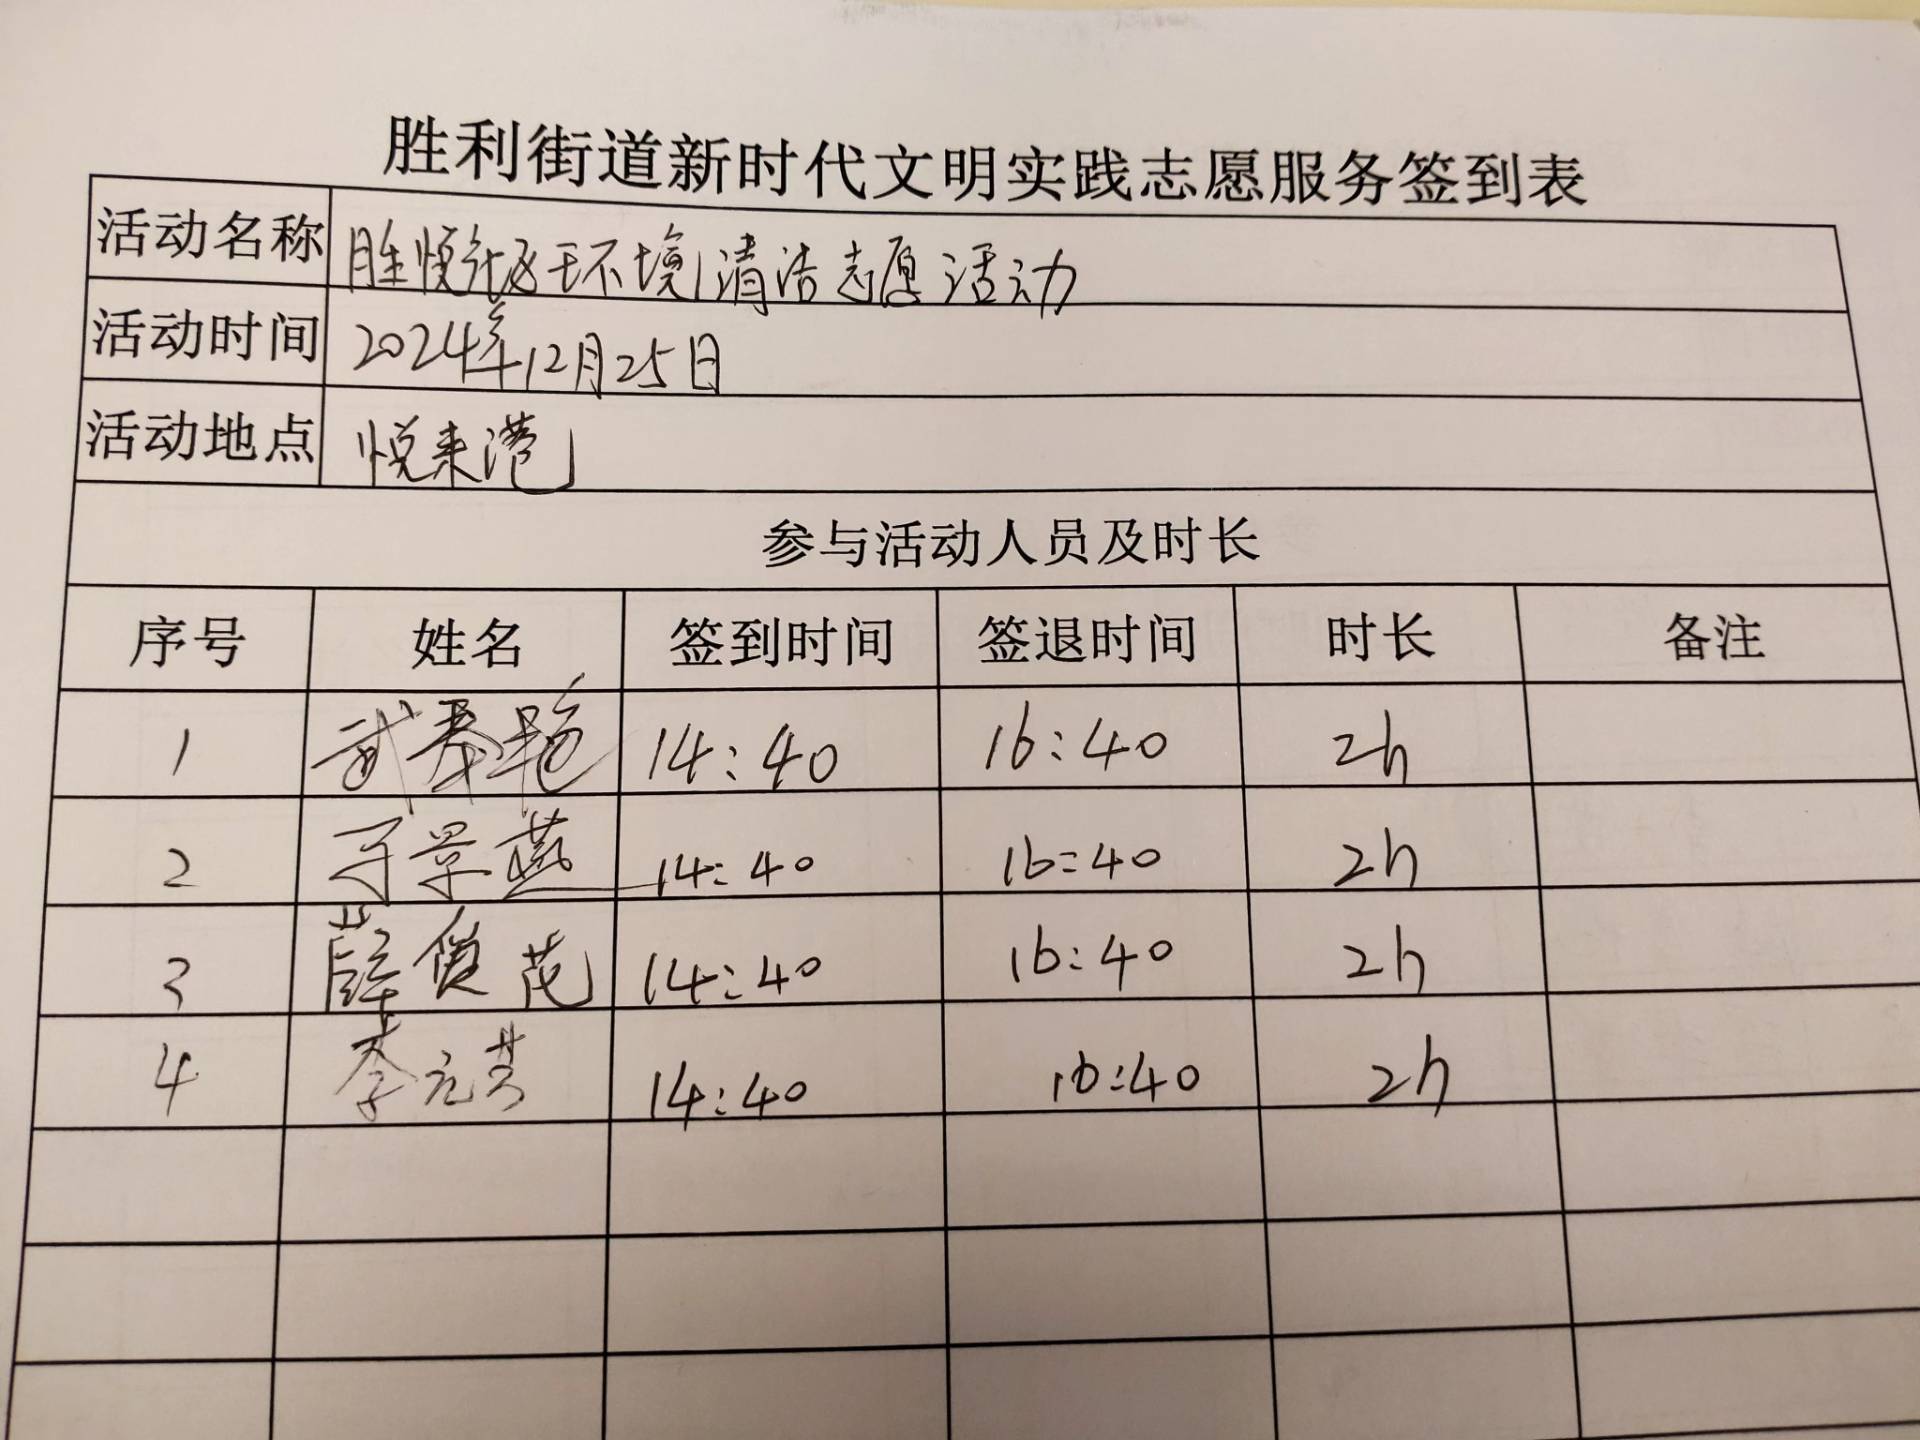 胜利街道新时代文明实践志愿服务签到表
活动名称 胜悦社区环境清洁志愿活动
活动时间 2024年12月25日
活动地点 悦来港
参与活动人员及时长
序号 姓名 签到时间 签退时间 时长 备注
1 武秀艳 14:40 16:40 2h
2 于景燕 14:40 16:40 2h
3 薛俊花 14:40 16:40 2h
4 李元芳 14:40 16:40 2h